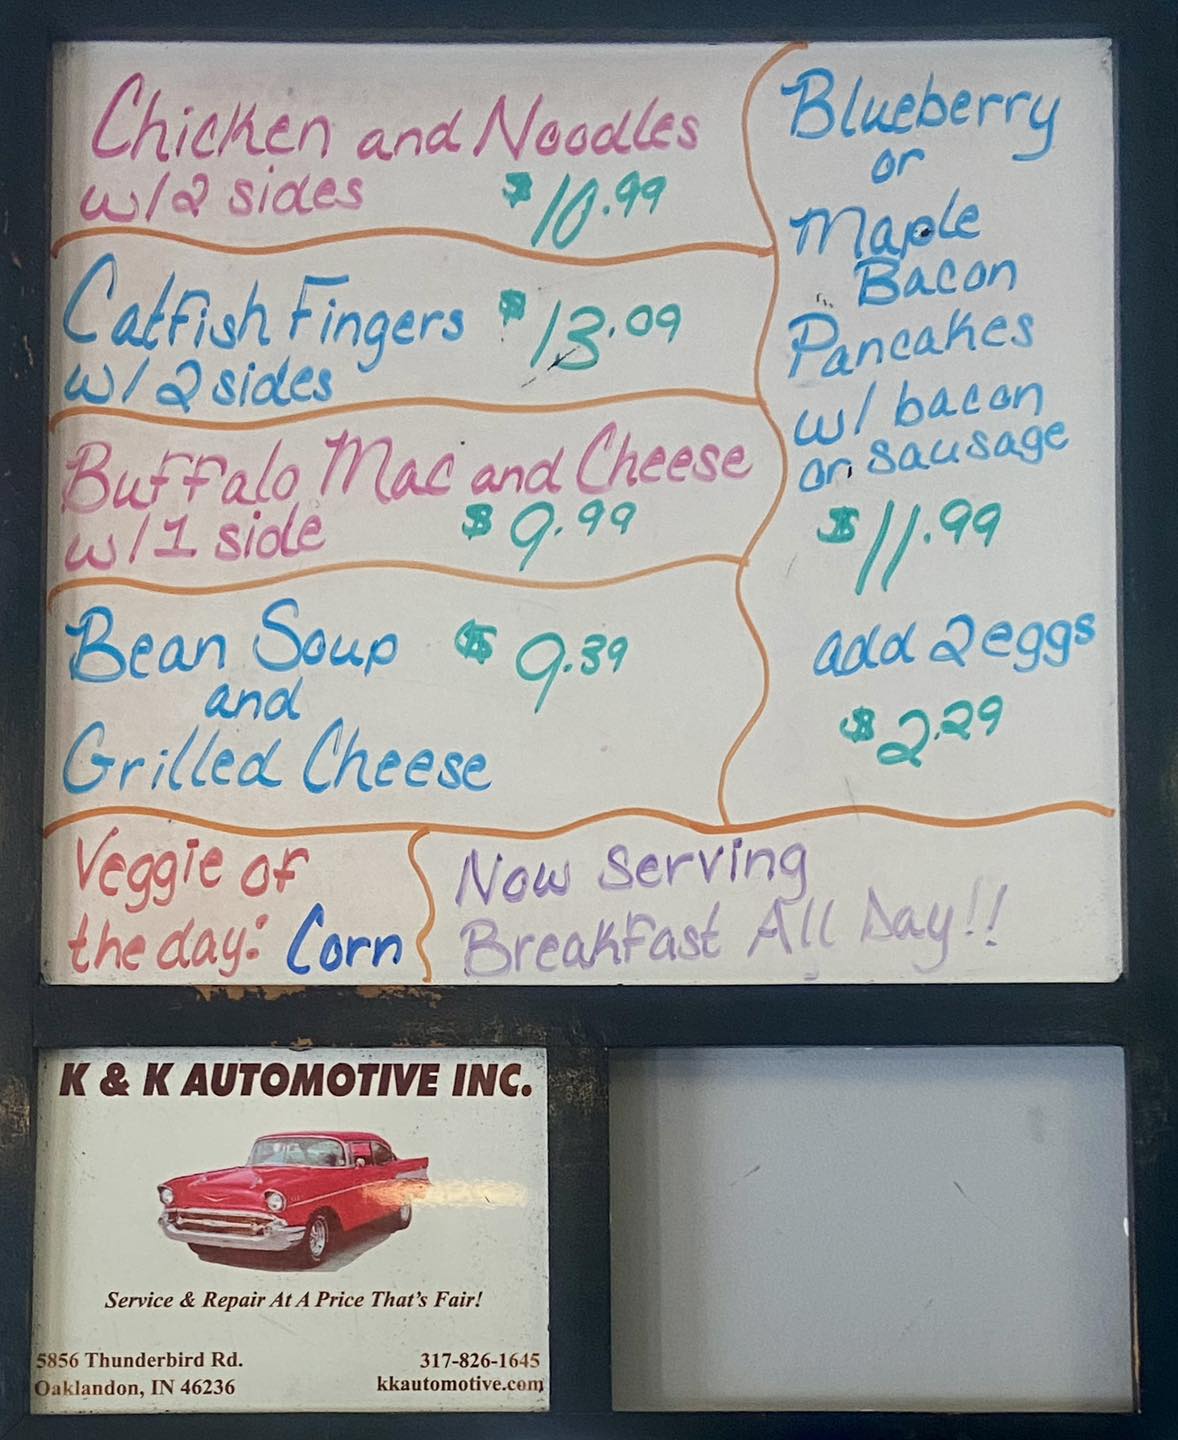 Chicken and Noodles
w/2 sides $10.99
Catfish Fingers $13.09
w/2 sides
Buffalo Mac and Cheese
w/1 side $9.99
Bean Soup $9.39
and
Grilled Cheese
Blueberry
or
Maple
Bacon
Pancakes
w/ bacon
or sausage
$11.99
add 2 eggs
$2.29
Veggie of
the day: Corn
Now Serving
Breakfast All Day!!
K & K AUTOMOTIVE INC.
Service & Repair At A Price That's Fair!
5856 Thunderbird Rd. 317-826-1645
Oaklandon, IN 46236 kkautomotive.com